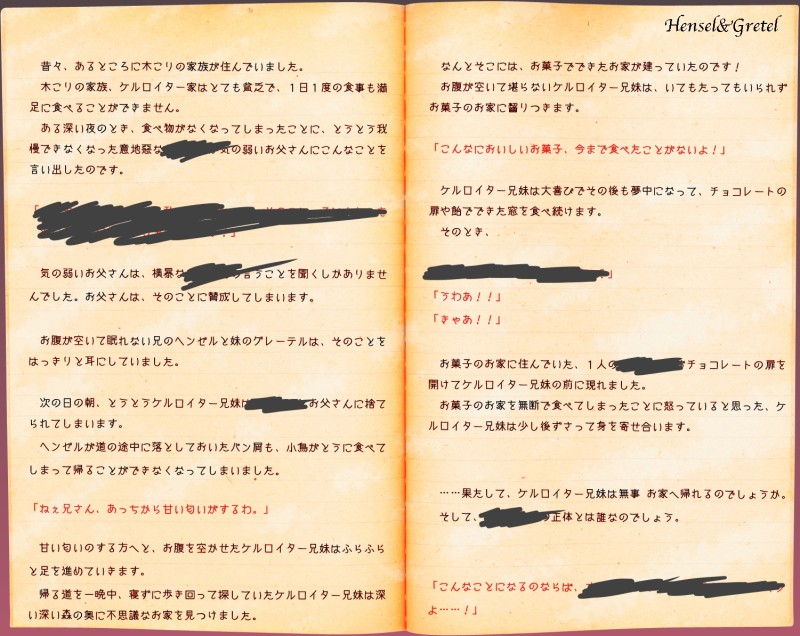 Hensel&Gretel
昔々、あるところに木こりの家族が住んでいました。
木こりの家族、ケルロイター家はとても貧乏で、1日1度の食事も満
足に食べることができません。
ある深い夜のとき、食べ物がなくなってしまったことに、とうとう我
慢できなくなった意地悪な 気の弱いお父さんにこんなことを
言い出したのです。
「
！」
気の弱いお父さんは、横暴な 言うことを聞くしかありませ
んでした。お父さんは、そのことに賛成してしまいます。
お腹が空いて眠れない兄のヘンゼルと妹のグレーテルは、そのことを
はっきりと耳にしていました。
次の日の朝、とうとうケルロイター兄妹は お父さんに捨て
られてしまいます。
ヘンゼルが道の途中に落としておいたパン屑も、小鳥がとうに食べて
しまって帰ることができなくなってしまいました。
「ねぇ兄さん、あっちから甘い匂いがするわ。」
甘い匂いのする方へと、お腹を空かせたケルロイター兄妹はふらふら
と足を進めていきます。
帰る道を一晩中、寝ずに歩き回って探していたケルロイター兄妹は深
い深い森の奥に不思議なお家を見つけました。
なんとそこには、お菓子でできたお家が建っていたのです！
お腹が空いて堪らないケルロイター兄妹は、いてもたってもいられず
お菓子のお家に齧りつきます。
「こんなにおいしいお菓子、今まで食べたことがないよ！」
ケルロイター兄妹は大喜びでその後も夢中になって、チョコレートの
扉や飴でできた窓を食べ続けます。
そのとき、
」
「うわあ！！」
「きゃあ！！」
お菓子のお家に住んでいた、1人の がチョコレートの扉を
開けてケルロイター兄妹の前に現れました。
お菓子のお家を無断で食べてしまったことに怒っていると思った、ケ
ルロイター兄妹は少し後ずさって身を寄せ合います。
……果たして、ケルロイター兄妹は無事 お家へ帰れるのでしょうか。
そして、 の正体とは誰なのでしょう。
「こんなことになるのならば、
よ……！」